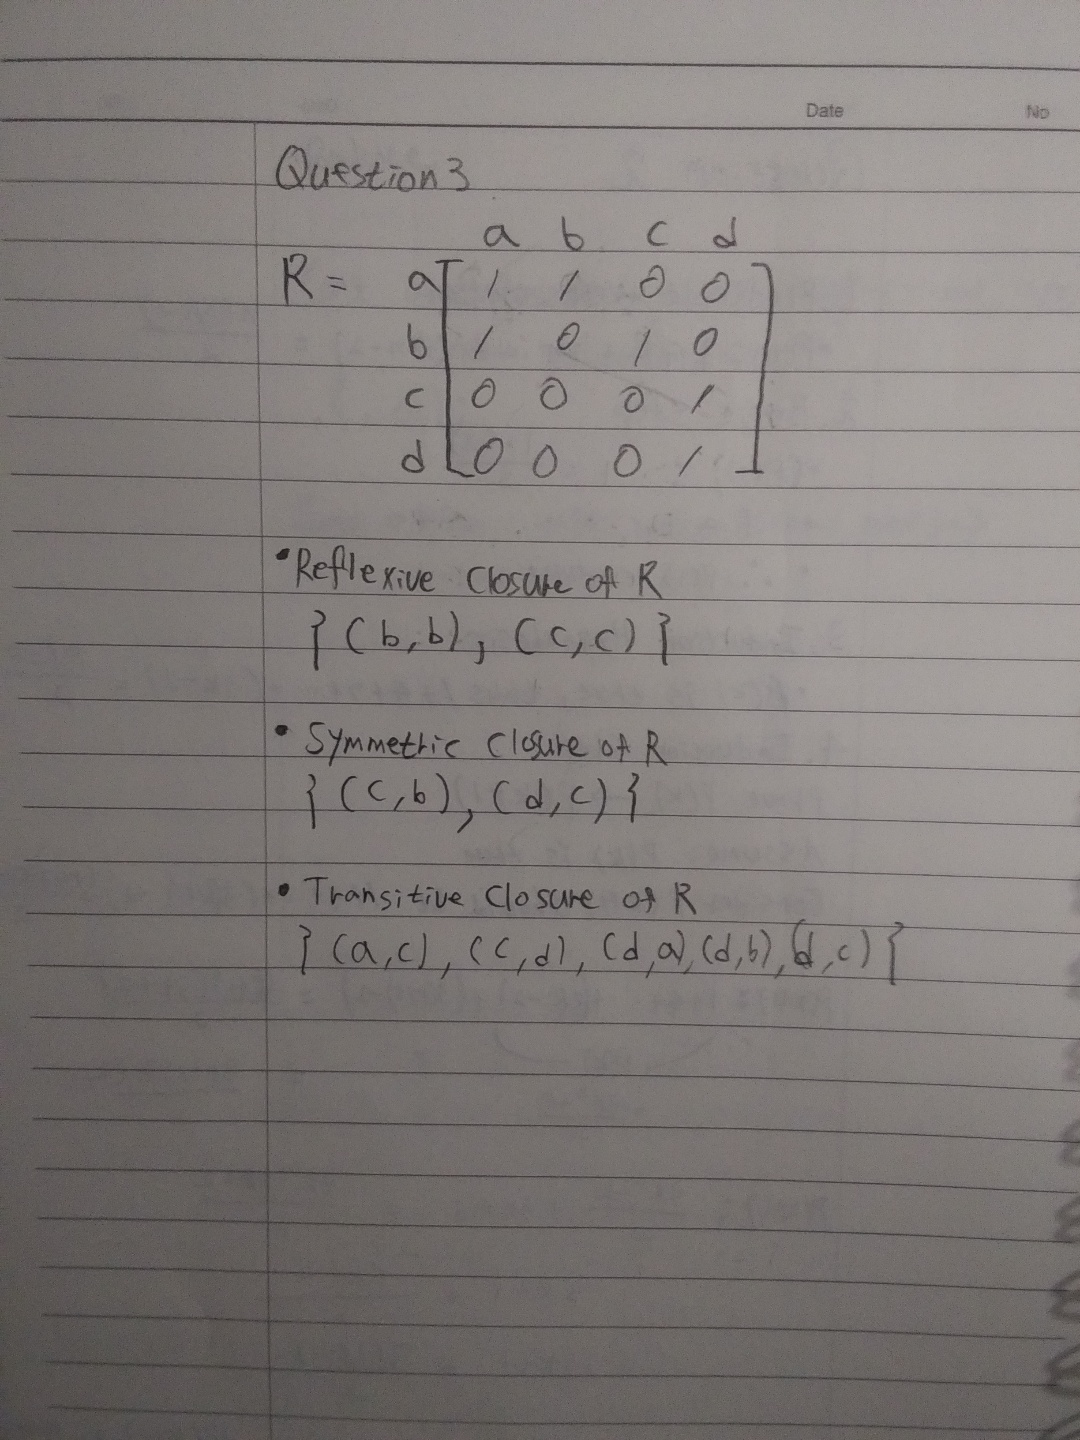 Date No
Question 3
a b c d
R = a [ 1 1 0 0 ]
b 1 0 1 0
c 0 0 0 1
d 0 0 0 1
• Reflexive Closure of R
{ (b,b), (c,c) }
• Symmetric Closure of R
{ (c,b), (d,c) }
• Transitive Closure of R
{ (a,c), (c,d), (d,a), (d,b), (d,c) }